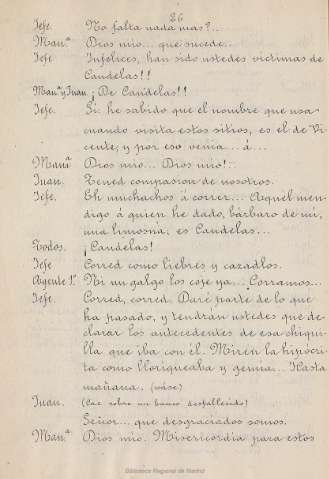 26
Jefe. No falta nada mas?..
Manª Dios mio... que sucede..
Jefe Infelices, han sido ustedes víctimas de
Candelas!!
Manª y Juan ¡De Candelas!!
Jefe. Si: he sabido que el nombre que usa
cuando visita estos sitios, es el de Vi
cente; y por eso venia... á...
Manª Dios mio... Dios mio!..
Juan. Tened compasion de nosotros.
Jefe. Eh muchachos á correr... Aquél men-
digo á quien he dado, bárbaro de mi,
una limosna, es Candelas...
Todos. ¡Candelas!
Jefe Corred como liebres y cazadlos.
Agente 1º. Ni un galgo los coje ya... Corramos...
Jefe. Corred, corred. Daré parte de lo que
ha pasado, y tendrán ustedes que de-
clarar los antecedentes de esa chiqui-
lla que iba con él. Miren la hipócri
ta como lloriqueaba y gemia... Hasta
mañana. (váse)
Juan. (Cae sobre un banco desfallecido)
Señor... que desgraciados somos.
Manª Dios mio. Misericordia para estos
Biblioteca Regional de Madrid